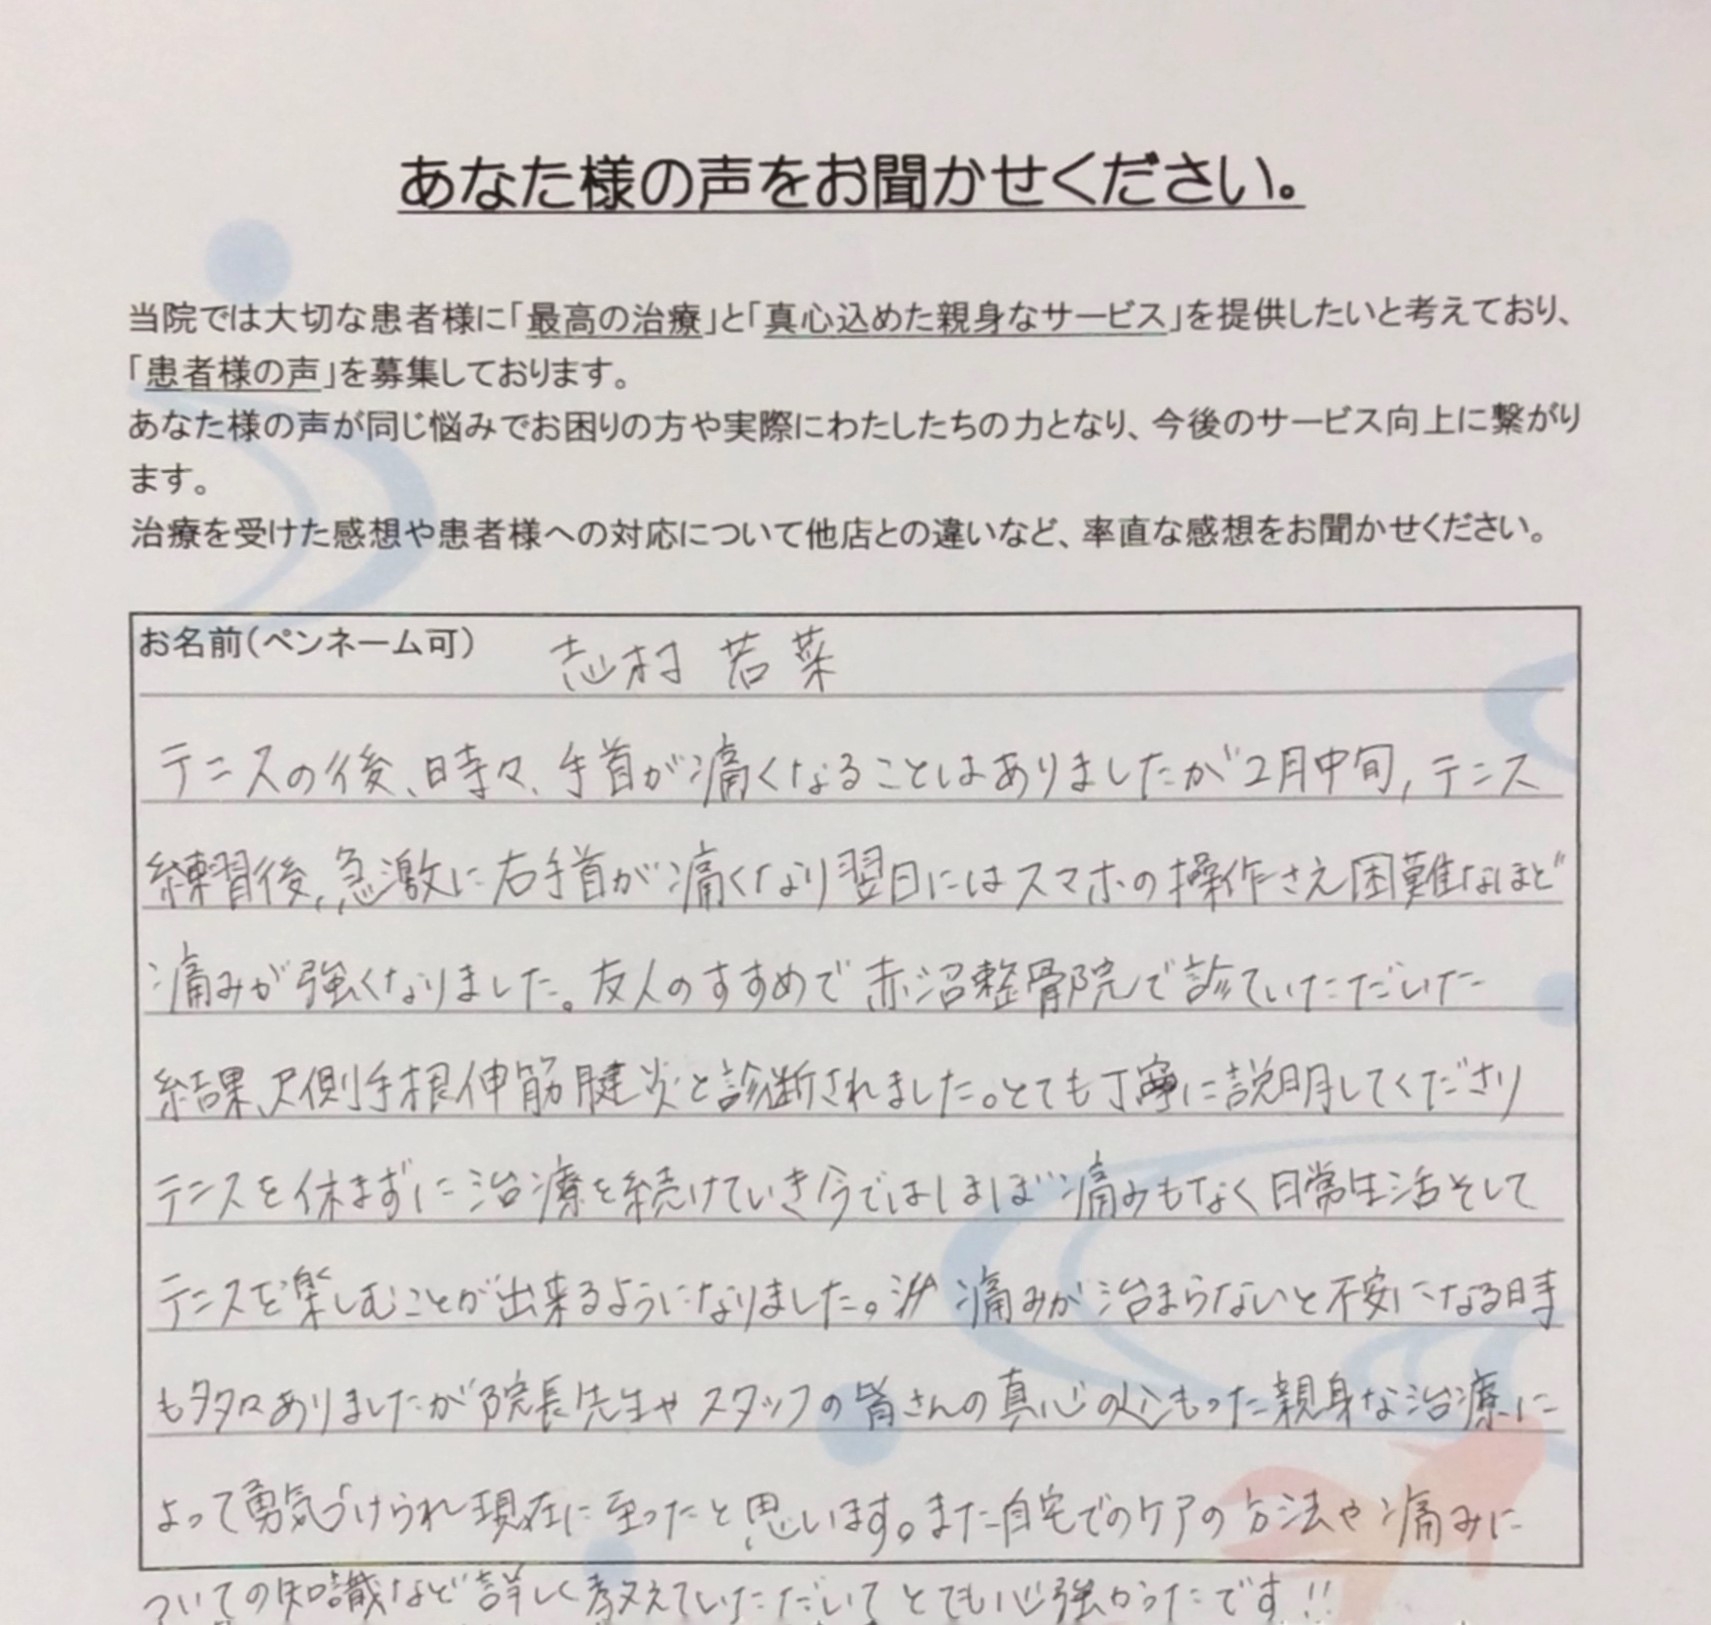 あなた様の声をお聞かせください。
当院では大切な患者様に「最高の治療」と「真心込めた親身なサービス」を提供したいと考えており、
「患者様の声」を募集しております。
あなた様の声が同じ悩みでお困りの方や実際にわたしたちの力となり、今後のサービス向上に繋がり
ます。
治療を受けた感想や患者様への対応について他店との違いなど、率直な感想をお聞かせください。
お名前(ペンネーム可) 志村 若菜
テニスの後、時々、手首が痛くなることはありましたが2月中旬,テニス
練習後、急激に右手首が痛くなり翌日にはスマホの操作さえ困難なほど
痛みが強くなりました。友人のすすめで赤沼整骨院で診ていただいた
結果、尺側手根伸筋腱炎と診断されました。とても丁寧に説明してくださり
テニスを休まずに治療を続けていき今ではほぼ痛みもなく日常生活そして
テニスを楽しむことが出来るようになりました。痛みが治まらないと不安になる時
も多々ありましたが院長先生やスタッフの皆さんの真心の心もった親身な治療に
よって勇気づけられ現在に至ったと思います。また自宅でのケアの方法や痛みに
ついての知識など詳しく教えていただいてとても心強かったです!!